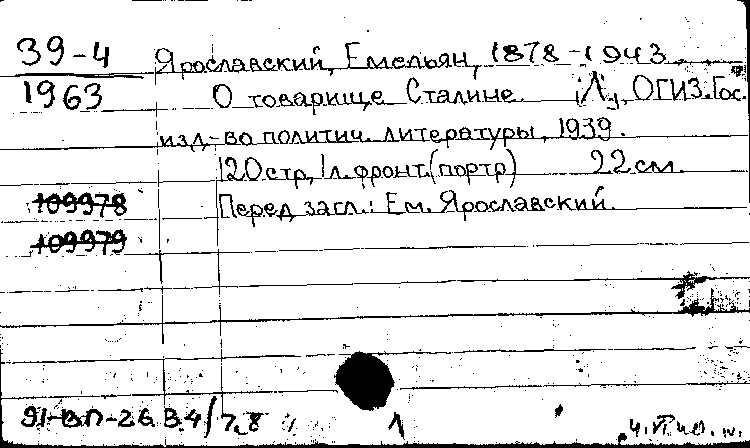 39-4 Ярославский, Емельян, 1878-1943.
1963 О товарище Сталине. [Л.], ОГИЗ. Гос.
изд-во политич. литературы, 1939.
120 стр., 1 л. фронт. (портр) 22 см.
109978 Перед загл.: Ем. Ярославский.
109979
91-ВП-26.В.4/7,8 1